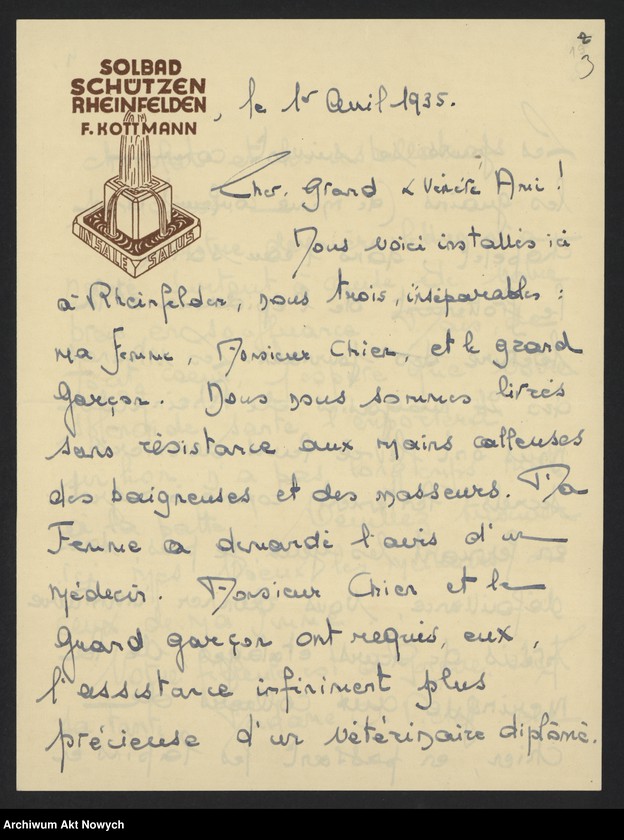 3
SOLBAD
SCHÜTZEN
RHEINFELDEN
F. KOTTMANN
, le 1er Avril 1935.
Cher, Grand & Vénéré Ami !
Nous voici installés ici
à Rheinfelden, nous trois, inséparables :
ma Femme, Monsieur Chien, et le grand
Garçon. Nous nous sommes livrés
sans résistance aux mains calleuses
des baigneuses et des masseurs. Ma
Femme a demandé l'avis d'un
médecin. Monsieur Chien et le
Grand garçon ont requis, eux,
l'assistance infiniment plus
précieuse d'un vétérinaire diplômé.
IN SALE SALUS
Archiwum Akt Nowych